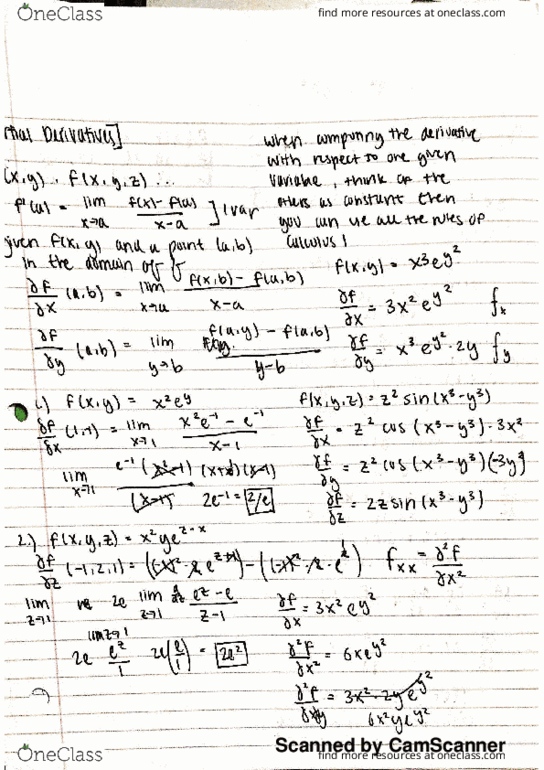 OneClass
find more resources at oneclass.com
tial Derivatives]
(x,y) . f(x,y,z) ...
f'(a) = lim x→a f(x)-f(a) / x-a ] 1 var
given f(x,y) and a point (a,b)
in the domain of f
∂f/∂x (a,b) = lim x→a f(x,b) - f(a,b) / x-a
∂f/∂y (a,b) = lim y→b f(a,y) - f(a,b) / y-b
when computing the derivative
with respect to one given
variable, think of the
others as constant then
you can use all the rules of
calculus 1
f(x,y) = x³e^y²
∂f/∂x = 3x²e^y² fx
∂f/∂y = x³e^y² · 2y fy
1.) f(x,y) = x²e^y
∂f/∂x (1,-1) = lim x→1 x²e⁻¹ - e⁻¹ / x-1
lim x→1 e⁻¹ (x²-1) (x+1)(x-1) / (x-1) 2e⁻¹ = 2/e
f(x,y,z) = z² sin(x³-y³)
∂f/∂x = z² cos(x³-y³) · 3x²
∂f/∂y = z² cos(x³-y³)(-3y²)
∂f/∂z = 2z sin(x³-y³)
2.) f(x,y,z) = x²ye^z-x
∂f/∂z (-1,2,1) =
lim z→1 2e lim z→1 e^z - e / z-1
lim z→1
2e e^z/1 2e(e/1) = 2e²
fxx = ∂²f/∂x²
∂f/∂x = 3x²e^y²
∂²f/∂x² = 6xe^y²
∂²f/∂x∂y = 3x² · 2y e^y²
6x²ye^y²
Scanned by CamScanner
OneClass
find more resources at oneclass.com